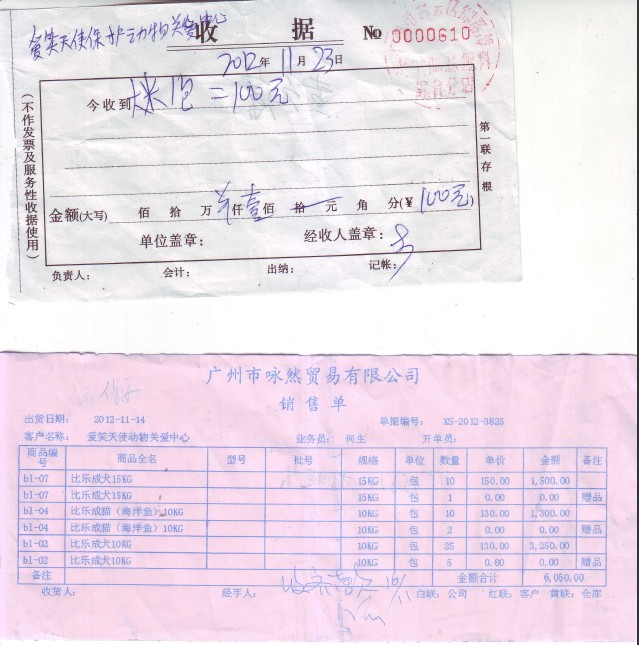 爱笑天使保护动物关爱中心
收 据 № 0000610
2012年11月23日
今收到 大米1包=100元
金额(大写) 佰 拾 万 仟壹佰 拾 元 角 分(¥ 100元)
单位盖章: 经收人盖章:
负责人: 会计: 出纳: 记帐:
(不作发票及服务性收据使用)
第一联 存根
广州市咏然贸易有限公司
销售单
出货日期: 2012-11-14 单据编号: XS-2012-3825
客户名称: 爱笑天使动物关爱中心 业务员: 何生 开单员:
商品编号 商品全名 型号 批号 规格 单位 数量 单价 金额 备注
b1-07 比乐成犬15KG 15KG 包 10 150.00 1,500.00
b1-07 比乐成犬15KG 15KG 包 1 0.00 0.00 赠品
b1-04 比乐成猫(海洋鱼)10KG 10KG 包 10 130.00 1,300.00
b1-04 比乐成猫(海洋鱼)10KG 10KG 包 2 0.00 0.00 赠品
b1-02 比乐成犬10KG 10KG 包 25 130.00 3,250.00
b1-02 比乐成犬10KG 10KG 包 5 0.00 0.00 赠品
备注 金额合计 6,050.00
收货人: 经手人: 白联: 公司 红联: 客户 黄联: 仓库